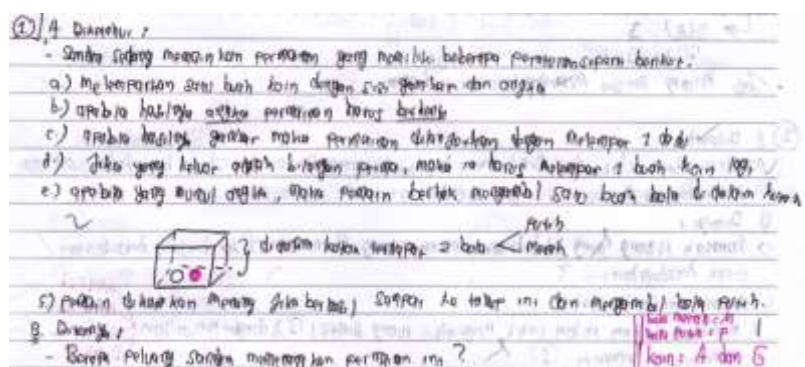 ① A Diketahui :
- Sandra sedang memainkan permainan yang memiliki beberapa peraturan seperti berikut.
a.) Melemparkan satu buah koin dengan sisi gambar dan angka
b.) apabila hasilnya angka permainan harus berhenti
c.) apabila hasilnya gambar maka permainan dilanjutkan dengan melempar 1 dadu
d.) Jika yang keluar adalah bilangan prima, maka ia harus melempar 1 buah koin lagi
e.) apabila yang muncul angka, maka pemain berhak mengambil satu buah bola di dalam kotak
didalam kotak terdapat 2 bola < Putih
Merah
5) pemain dikatakan menang jika berhasil sampai ke tahap ini dan mengambil bola putih.
B. Ditanya :
- Berapa peluang Sandra memenangkan permainan ini ?
bola merah = M
bola putih = P
koin = A dan G